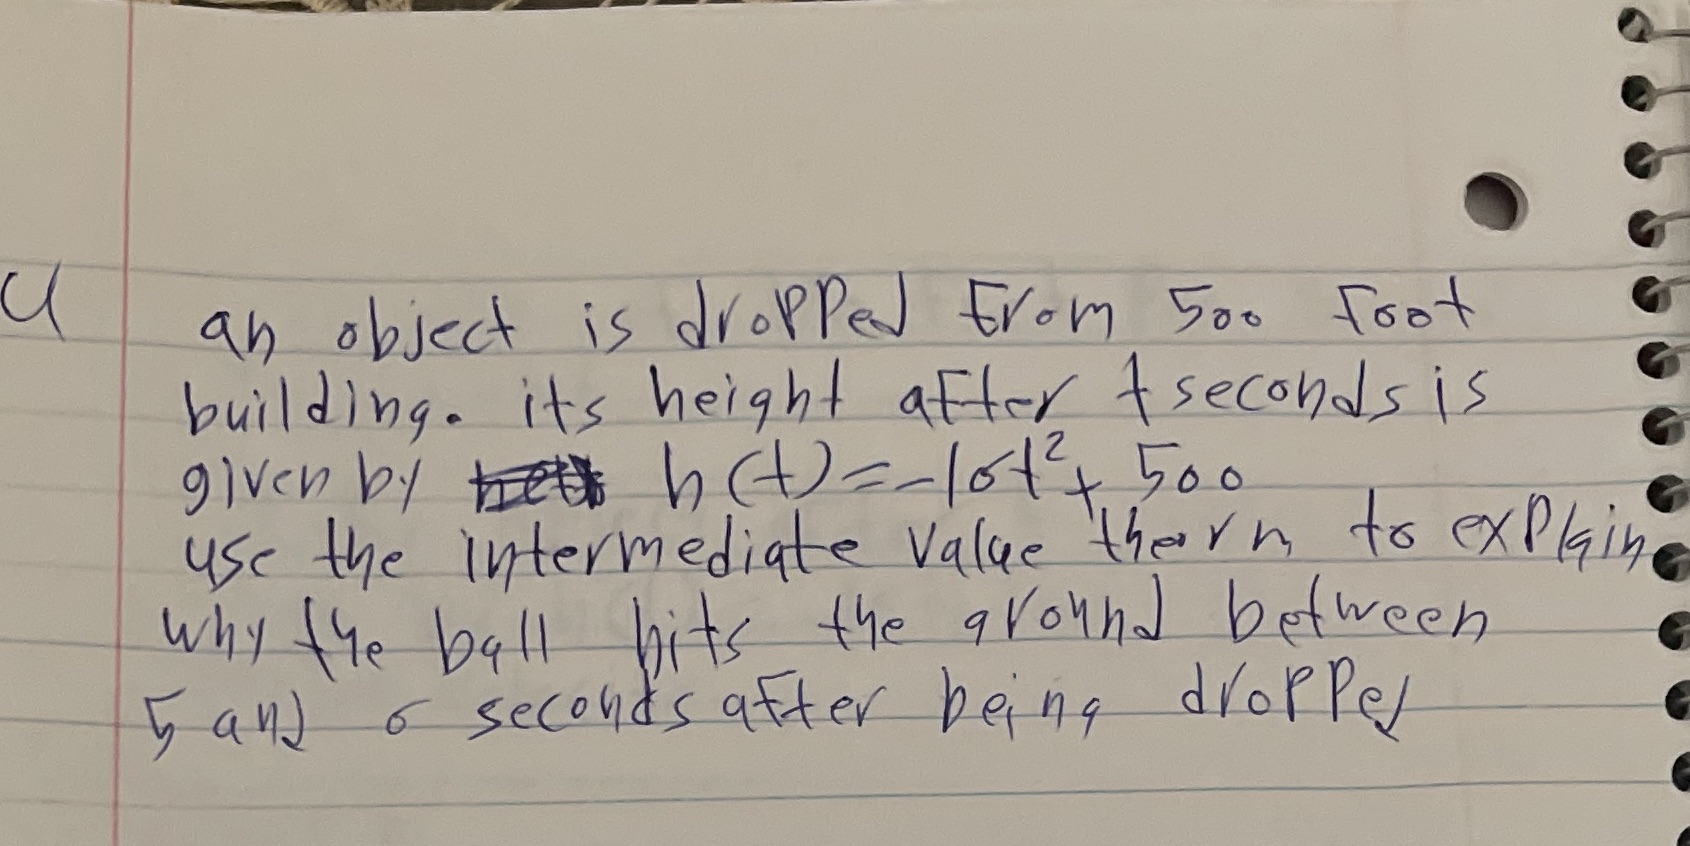 4 an object is dropped from 500 foot
building. its height after t seconds is
given by h(t)=-16t²+ 500
use the intermediate value theorm to explain
why the ball hits the ground between
5 and 6 seconds after being dropped